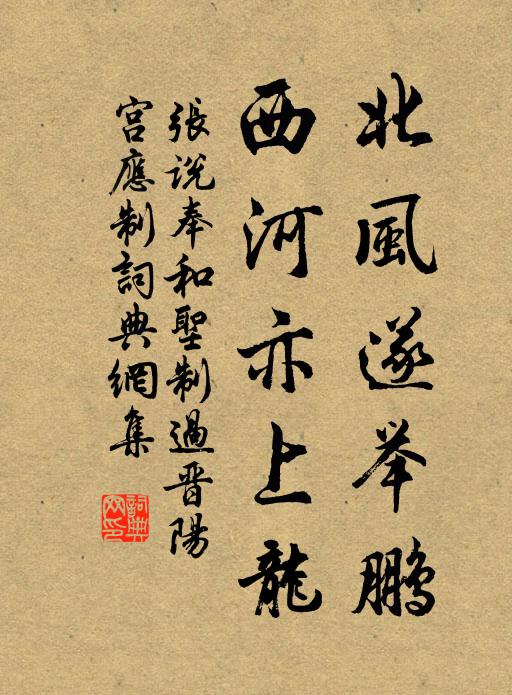 北風遂举鵬
西河亦上龍
張说奉和聖制過晋陽
宫應制詞典網集
詞典网印